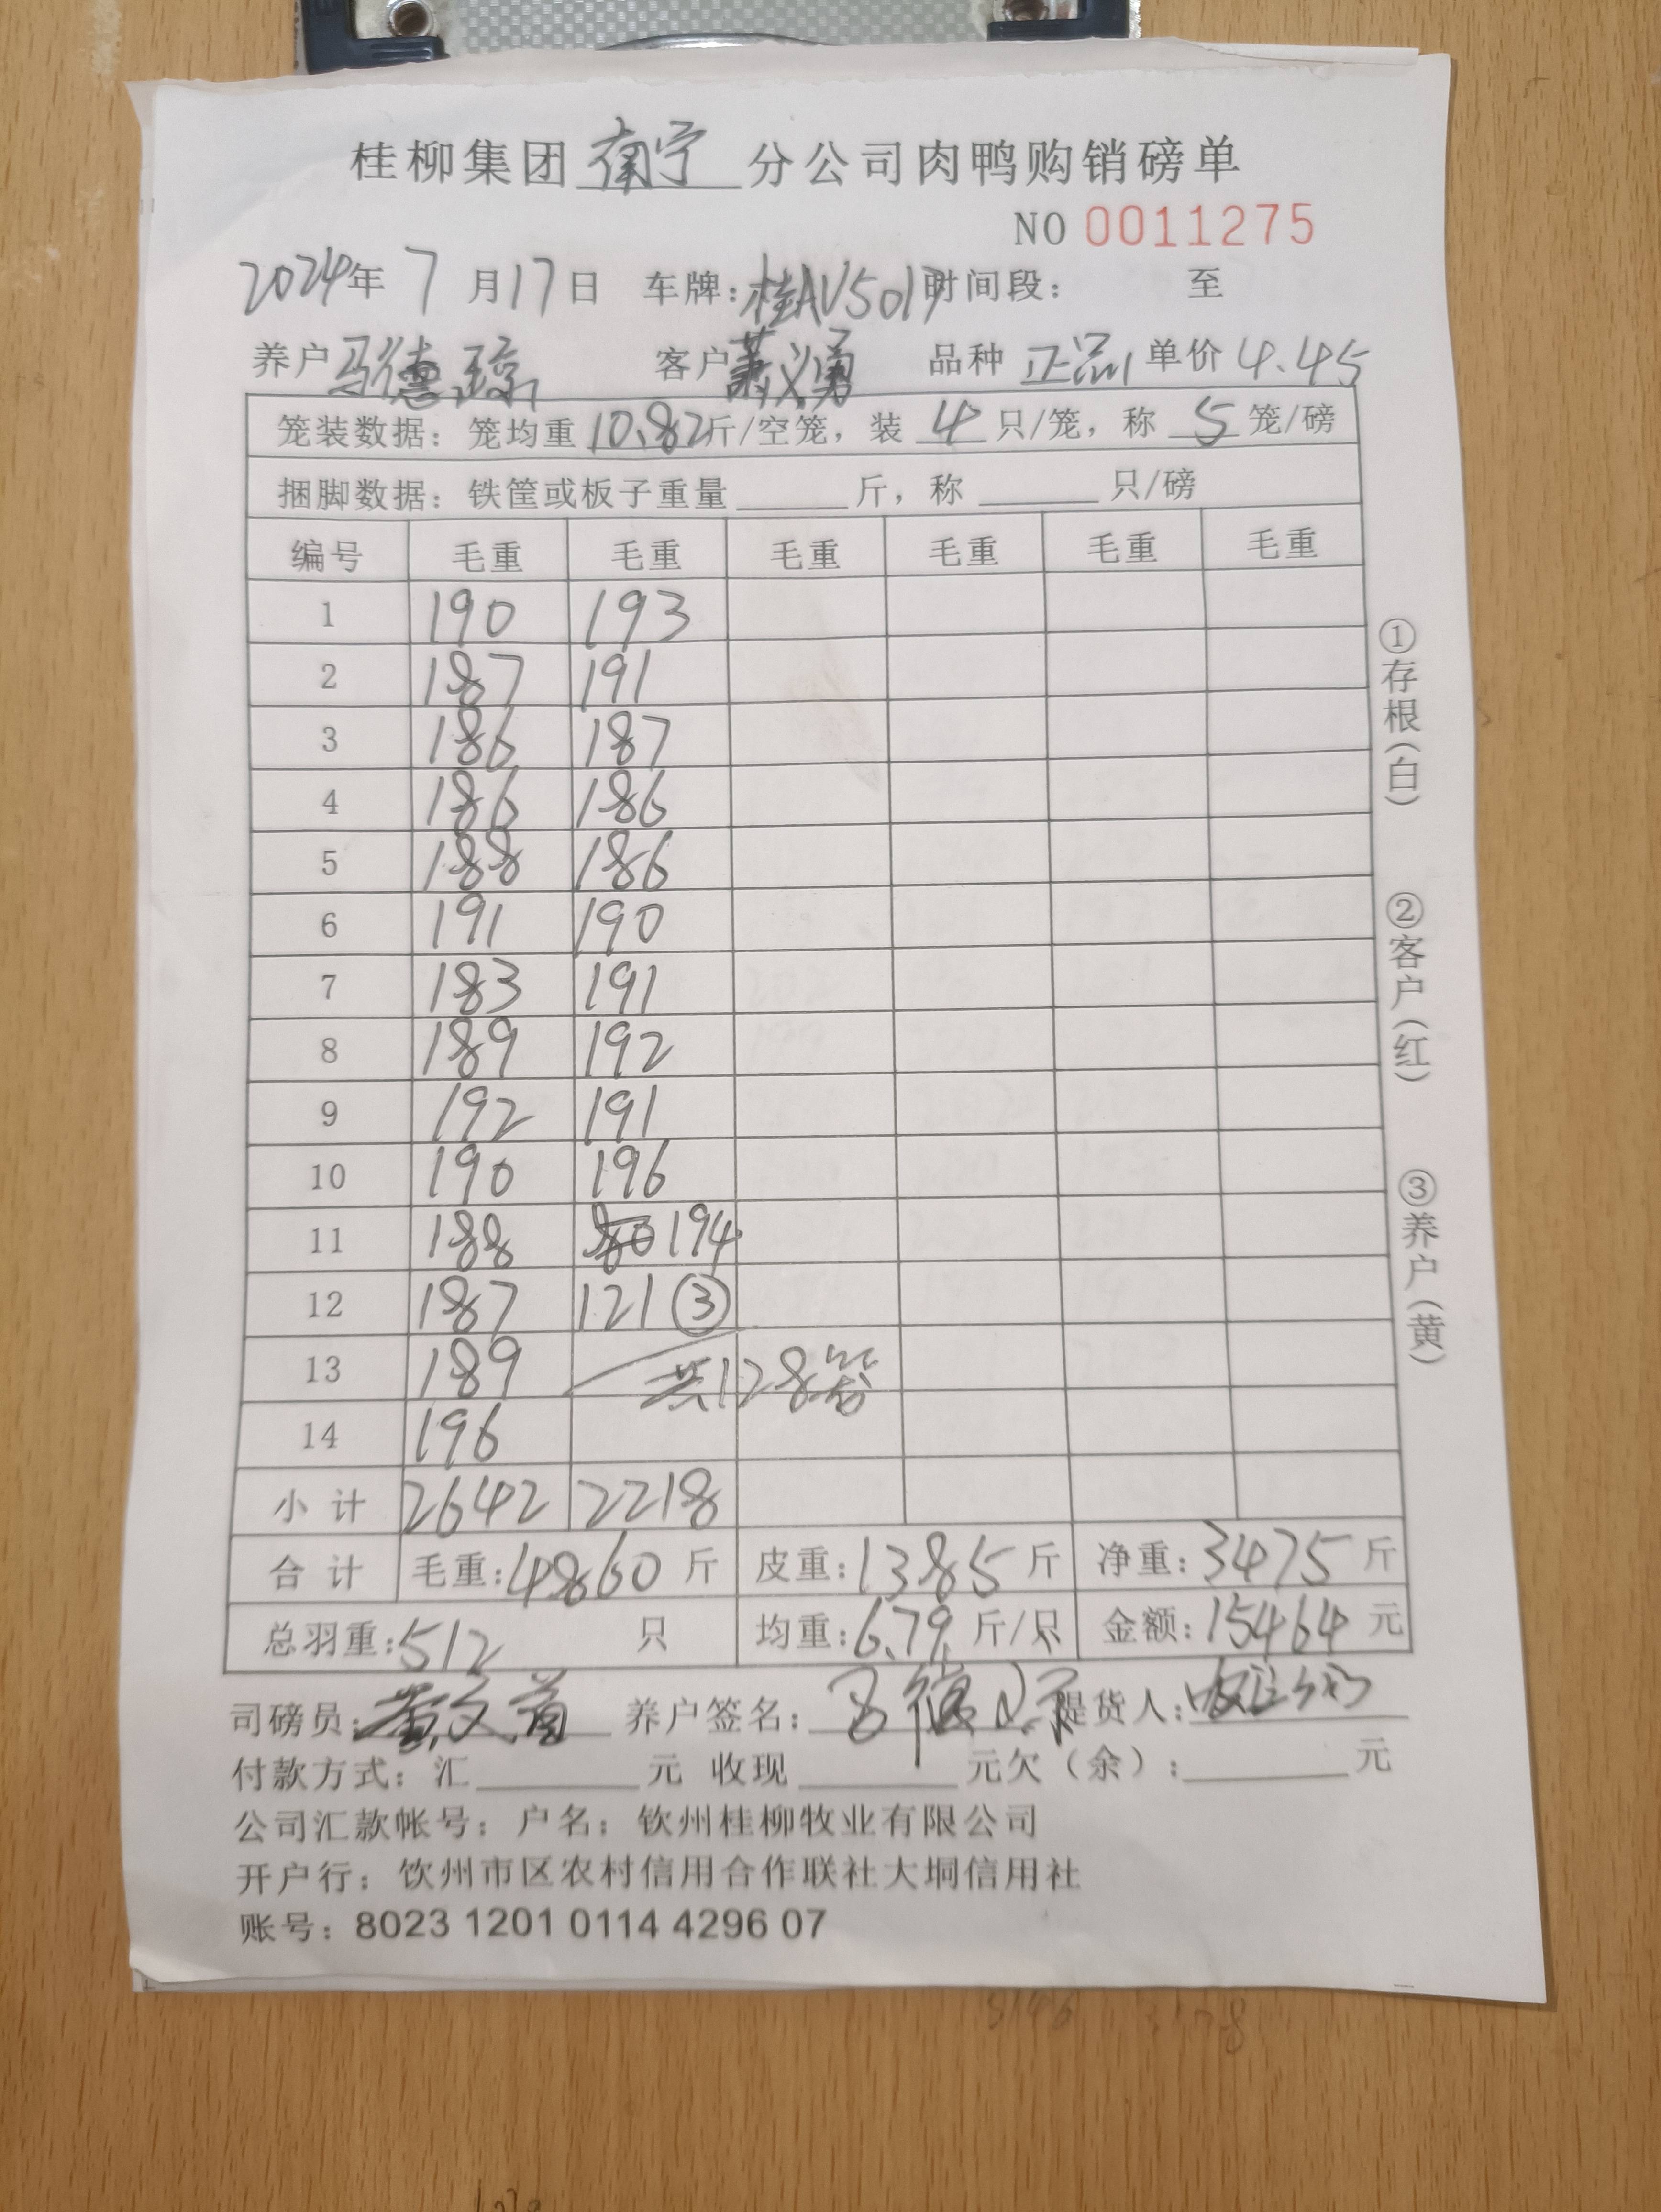 桂柳集团 南宁 分公司肉鸭购销磅单
NO 0011275
2024年 7 月17日 车牌:桂AV5017 时间段: 至
养户 马德琼 客户 萧义勇 品种 正品 单价 4.45
笼装数据: 笼均重 10.82 斤/空笼, 装 4 只/笼, 称 5 笼/磅
捆脚数据: 铁筐或板子重量 斤, 称 只/磅
编号 毛重 毛重 毛重 毛重 毛重 毛重
1 190 193
2 187 191
3 186 187
4 186 186
5 188 186
6 191 190
7 183 191
8 189 192
9 192 191
10 190 196
11 188 194
12 187 121 ③
13 189 共128笼
14 196
小计 2642 2218
合计 毛重:4860 斤 皮重:1385 斤 净重:3475 斤
总羽重:512 只 均重:6.79 斤/只 金额:15464 元
司磅员: 养户签名: 提货人:
付款方式: 汇 元 收现 元欠(余): 元
公司汇款帐号: 户名: 钦州桂柳牧业有限公司
开户行: 钦州市区农村信用合作联社大垌信用社
账号: 8023 1201 0114 4296 07
①存根(白)
②客户(红)
③养户(黄)